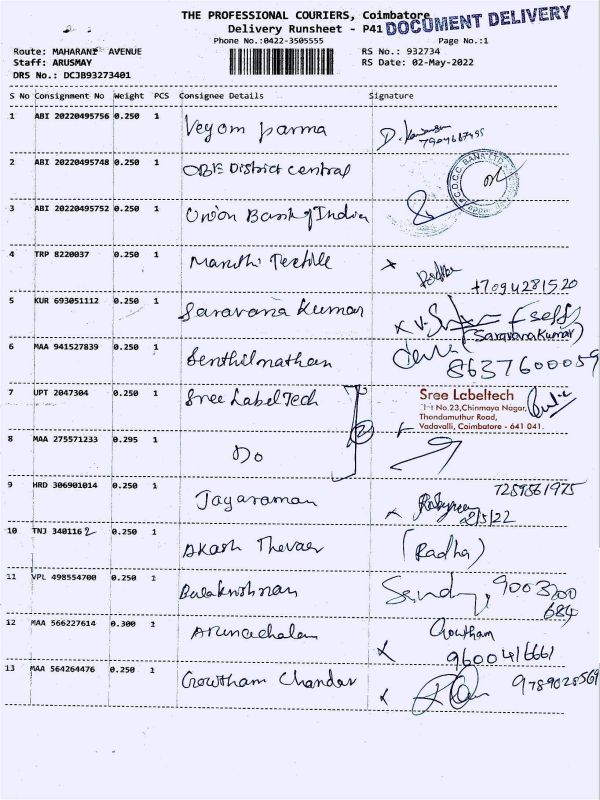 THE PROFESSIONAL COURIERS, Coimbatore
DOCUMENT DELIVERY
Delivery Runsheet - P41
Phone No.:0422-3505555
Page No.:1
Route: MAHARANI AVENUE
RS No.: 932734
Staff: ARUSMAY
RS Date: 02-May-2022
DRS No.: DCJB93273401
S No Consignment No Weight PCS Consignee Details Signature
1 ABI 20220495756 0.250 1 Veyom parma
7904667495
2 ABI 20220495748 0.250 1 OBE District central
C.D.C.C BANK LTD
3 ABI 20220495752 0.250 1 Union Bank of India
4 TRP 8220037 0.250 1 Maruthi Textile x Radha
+7094281520
5 KUR 693051112 0.250 1 Saravana Kumar x
(Saravana Kumar)
6 MAA 941527839 0.250 1 Senthilnathan
8637600059
7 UPT 2047304 0.250 1 Sree Label Tech
Sree Labeltech
No.23,Chinmaya Nagar,
Thondamuthur Road,
Vadavalli, Coimbatore - 641 041.
8 MAA 275571233 0.295 1 Do
2
9 HRD 306901014 0.250 1 Jayaraman x 7259561975
2/5/22
10 TNJ 3401162 0.250 1 Akash Thevar (Radha)
11 VPL 498554700 0.250 1 Balakrishnan Sandy, 9003200
684
12 MAA 566227614 0.300 1 Arunachalam Gowtham
x 9600416661
13 MAA 564264476 0.250 1 Gowtham Chandar x 9789028569